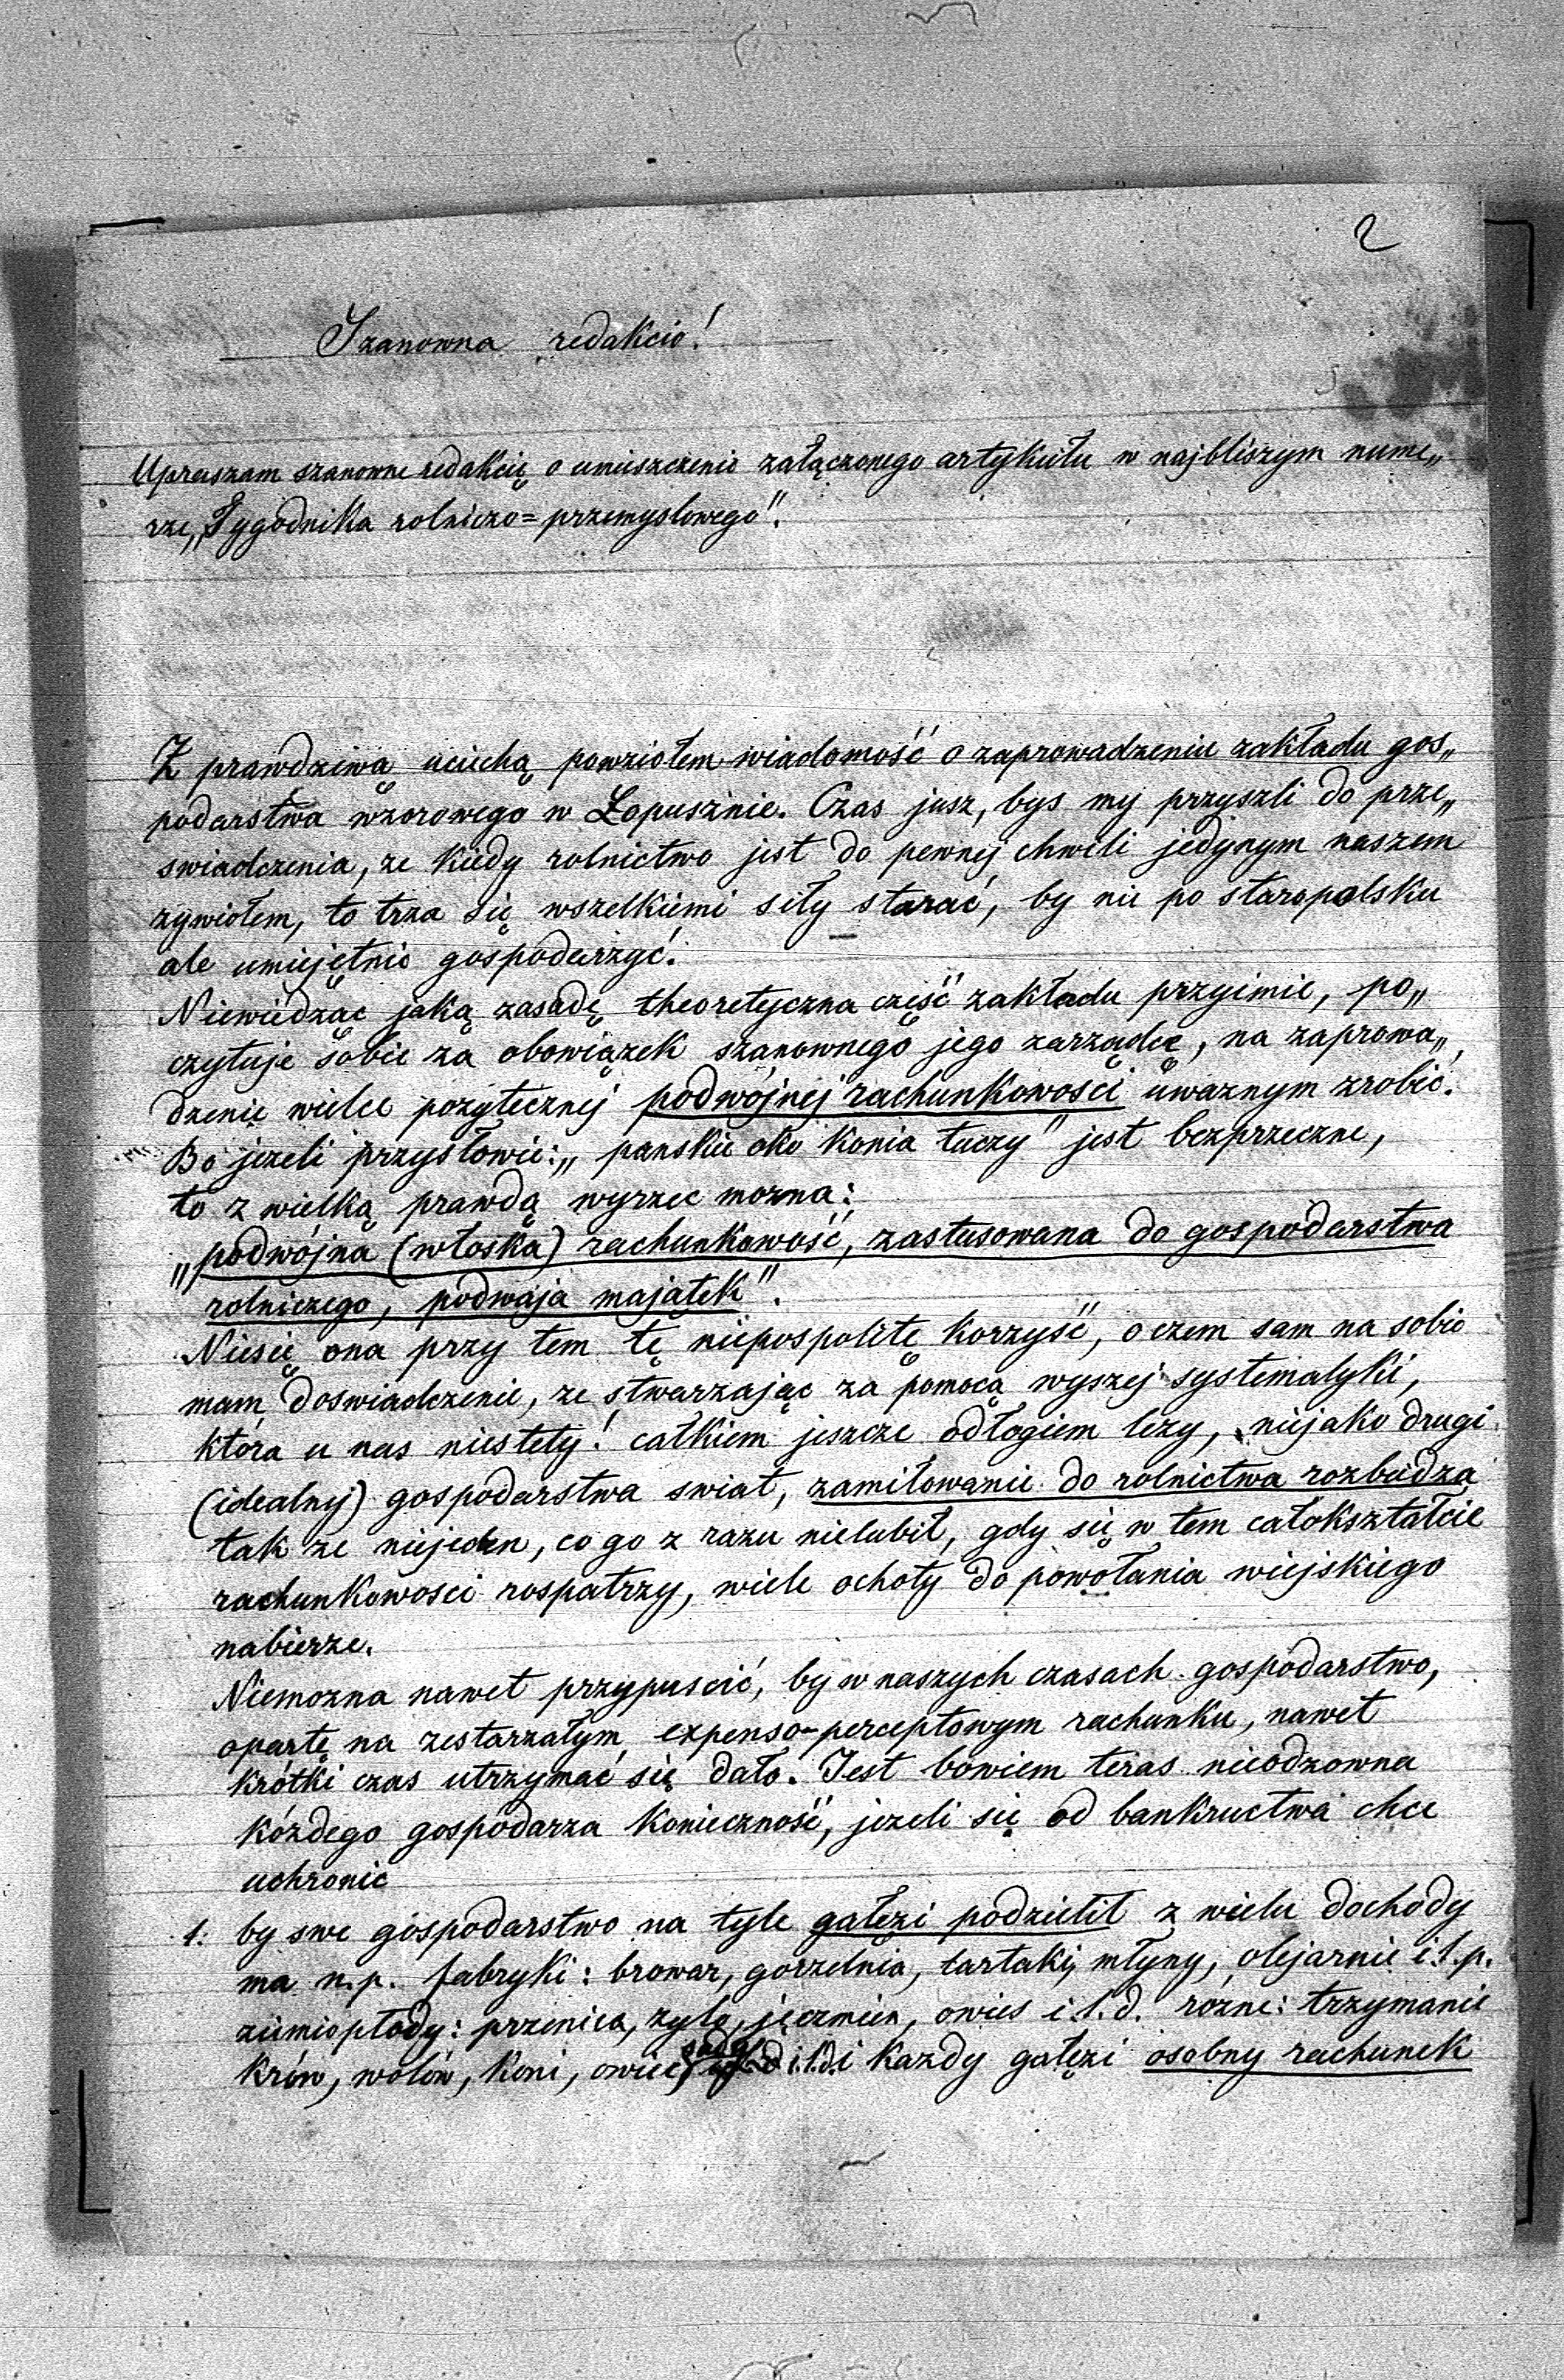 2
Szanowna redakcio!
Upraszam szanowne redakcię o umieszczenie załączonego artykułu w najbliszym nume„
rze „Tygodnika rolniczo=przemysłowego".
Z prawdziwą uciechą powziołem wiadomość o zaprowadzeniu zakładu gos„
podarstwa wzorowego w Łopusznie. Czas jusz, bys my przyszli do prze„
swiadczenia, ze kiedy rolnictwo jest do pewnej chwili jedynym naszem
zywiołem, to trza się wszelkiemi siły starać, by nie po staropolsku
ale umiejętnie gospodarzyć.
Niewiedząc jaką zasadę theoretyczna część zakładu przyimie, po„
czytuje sobie za obowiązek szanownego jego zarządcę, na zaprowa„
dzenie wielce pozytecznej podwójnej rachunkowosci uwaznym zrobić.
Bo jezeli przysłowie: „panskie oko konia tuczy" jest bezprzeczne,
to z wielką prawdą wyrzec mozna:
„podwójna (włoska) rachunkowość, zastusowana do gospodarstwa
rolniczego, podwaja majątek".
Niesię ona przy tem tę niepospolitę korzyść, o czem sam na sobie
mam doswiadczenie, ze stwarzając za pomocą wyszej systematyki,
która u nas niestety! całkiem jeszcze odłogiem lezy, niejako drugi
(idealny) gospodarstwa swiat, zamiłowanie do rolnictwa rozbudza
tak ze niejeden, co go z razu nielubił, gdy się w tem całokształcie
rachunkowosci rospatrzy, wiele ochoty do powołania wiejskiego
nabierze.
Niemozna nawet przypuscić, by w naszych czasach gospodarstwo,
opartę na zestarzałym expenso-perceptowym rachunku, nawet
krótki czas utrzymać się dało. Jest bowiem teras nieodzowna
kózdego gospodarza konieczność, jezeli się od bankructwa chce
uchronic
1: by swe gospodarstwo na tyle gałęzi podzielił z wielu dochody
ma n.p. fabryki: browar, gorzelnia, tartaki, młyny, olejarnie i.t.p.
ziemiopłody: przenica, zyto, jęczmien, owies i.t.d. rozne: trzymanie
krów, wołów, koni, owiec, i.t.d. i kazdy gałęzi osobny rachunek